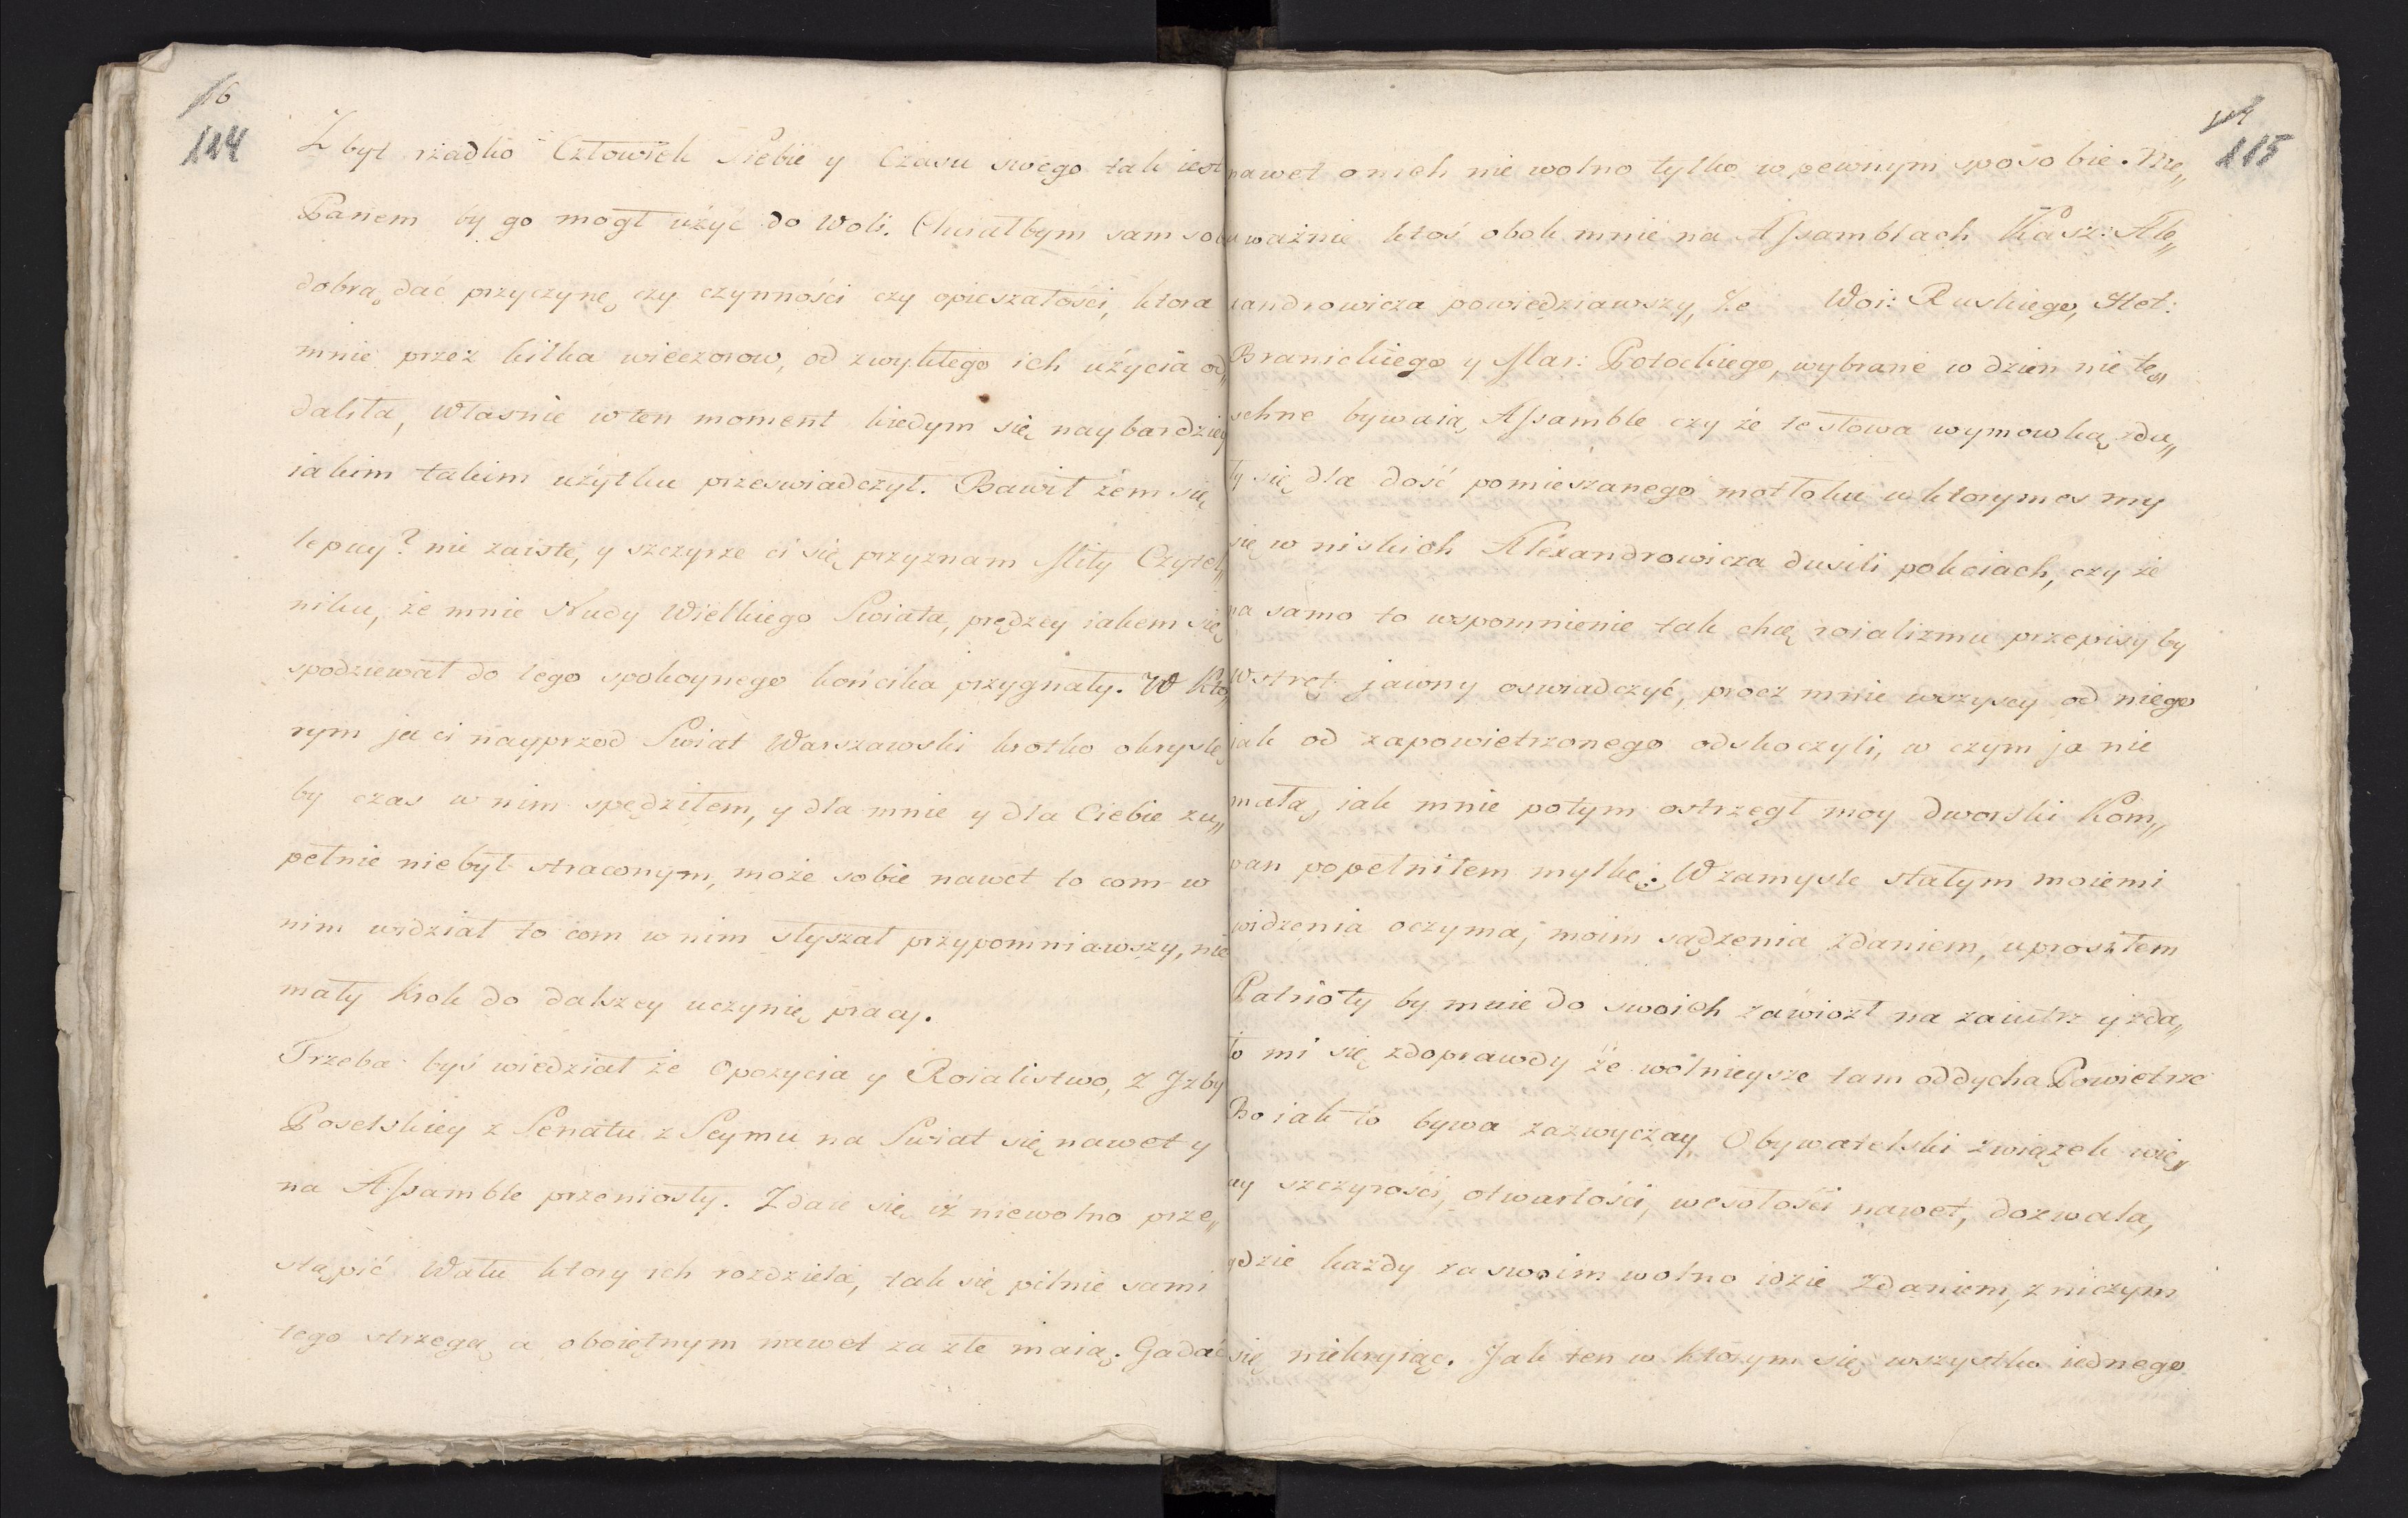 16
114
Zbyt rżadko Człowiek siebie y Czasu swego tak iest
Panem by go mogł użyć do Woli. Chciałbym sam sobie
dobrą dać przyczynę czy czynności czy opieszałości, ktora
mnie przez kilka wieczorow, od zwykłego ich użycia od„
daliła, Własnie w ten moment kiedym się naybardziey
iakim takim użytku przeswiadczył. Bawił żem się
lepiey? nie zaiste, y szczyrze ci się przyznam Miły Czytel„
niku, że mnie Nudy Wielkiego Swiata, prędzey iakem się
spodziewał do tego spokoynego końcika przygnały. W kto„
rym ja ci nayprzod Swiat Warszawski krotko okryslę
by czas w nim spędziłem, y dla mnie y dla Ciebie zu„
pełnie niebył straconym, może sobie nawet to com w
nim widział to com w nim słyszał przypomniawszy, nie
mały krok do dalszey uczynię pracy.
Trzeba byś wiedział że Opozycia y Roialistwo, z Jzby
Poselskiey z Senatu z Seymu na Swiat się nawet y
na Assamble przeniosły. Zdaie się iż niewolno prze„
stąpić Wału ktory ich rozdziela, tak się pilnie sami
tego strzegą a oboiętnym nawet za złe maią. Gadać
115
nawet o nich nie wolno tylko w pewnym sposobie. Nie„
uważnie ktoś obok mnie na Assamblach Kasz: Ale„
xandrowicza powiedziawszy, że Woi: Ruskiego, Het:
Branickiego y Mar: Potockiego, wybrane w dzien nie te„
schne bywaią Assamble czy że te słowa wymowką zda„
ły się dla dość pomieszanego motłoku w ktorymes my
się w niskich Alexandrowicza dusili pokoiach, czy że
na samo to wspomnienie tak chcą roializmu przepisy by
Wstręt jawny oswiadczyć, procz mnie wszyscy od niego
jak od zapowietrzonego odskoczyli, w czym ja nie
małą, iak mnie potym ostrzegł moy dworski Kom„
pan popełniłem myłkę. W zamysle stałym moiemi
widzenia oczyma, moim sądzenia zdaniem, uprosiłem
Patrioty by mnie do swoich zawiozł na zaiutrz y zda„
ło mi się zdoprawdy że wolnieysze tam oddycha Powietrze
Bo iak to bywa zazwyczay Obywatelski związek wię„
cy szczyrości, otwartości, wesołości nawet, dozwala,
gdzie każdy za swoim wolno idzie Zdaniem, z niczym
się niekryiąc. Jak ten w ktorym się wszystko iednego